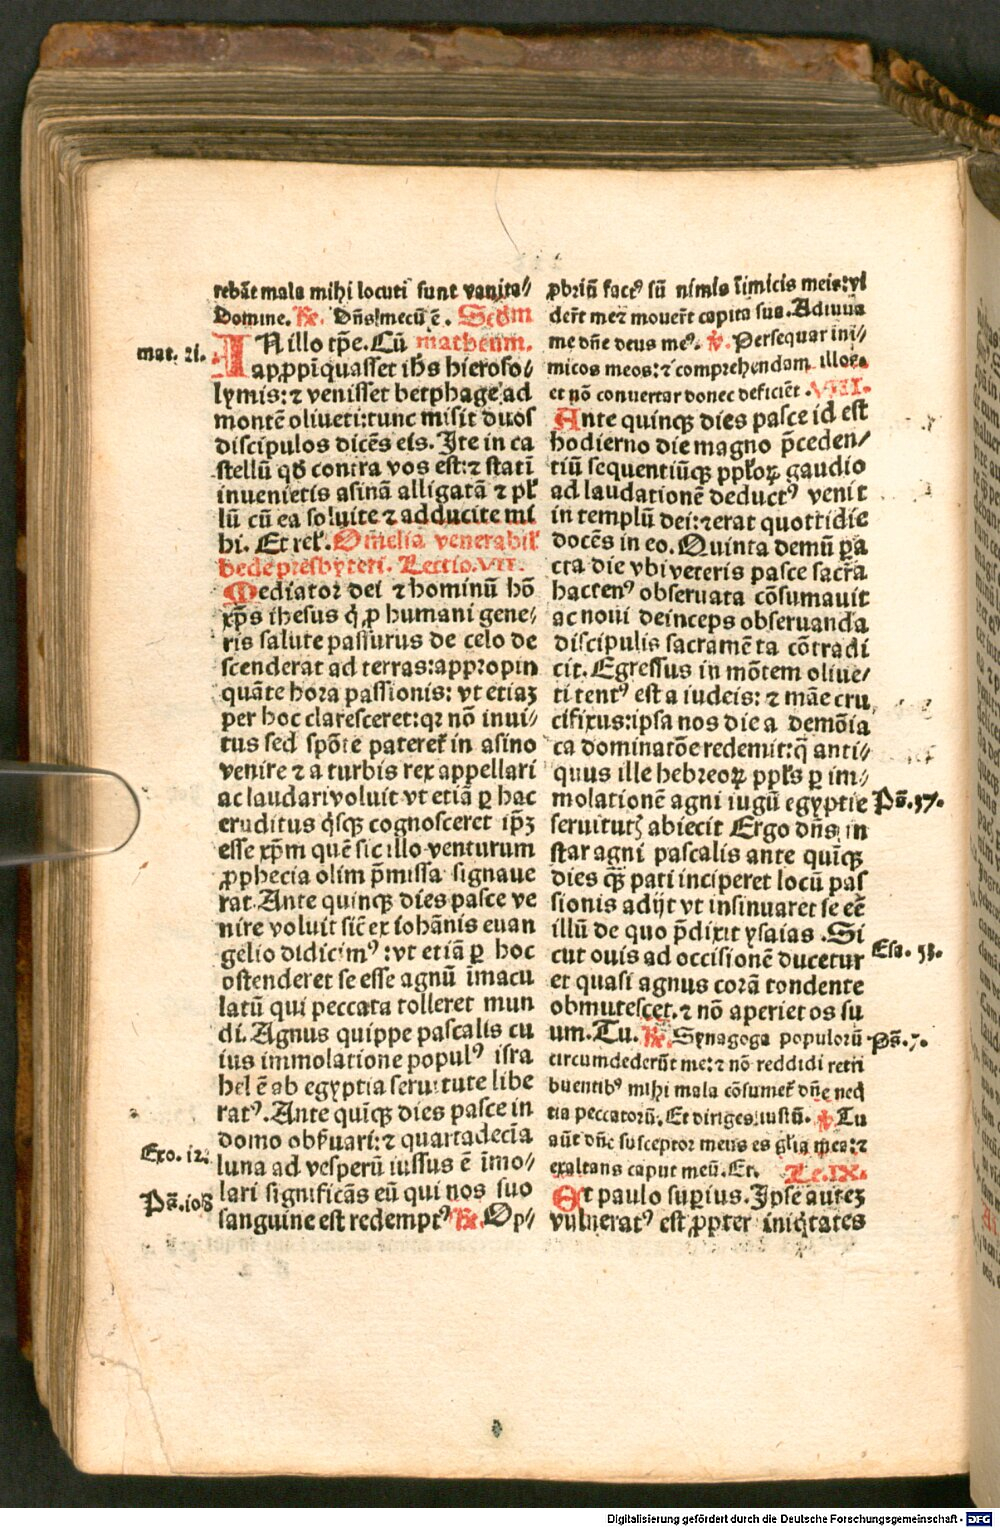 rebãt mala mihi locuti sunt vanita//
Domine. R̃. Dñs mecũ ẽ. Scd̃m
mat. 21.
IN illo tp̃e. Cũ matheum.
appropĩquasset ih̃s hieroso/
lymis: ⁊ venisset betphage ad
montẽ oliueti: tunc misit duos
discipulos dicẽs eis. Ite in ca
stellũ qd̃ contra vos est: ⁊ statĩ
inuenietis asinã alligatã ⁊ pł
lũ cũ ea soluite ⁊ adducite mi
hi. Et reł. Om̃elia venerabił
bede presbyteri. Lectio. VII.
Mediator dei ⁊ hominũ hõ
xp̃s ihesus q̇ ꝓ humani gene/
ris salute passurus de celo de
scenderat ad terras: appropin
quãte hora passionis: vt etiaꝫ
per hoc claresceret: qꝛ nõ inui//
tus sed spõte pateret̃ in asino
venire ⁊ a turbis rex appellari
ac laudari voluit vt etiã ꝑ hac
eruditus q̇sqꝫ cognosceret ip̃ꝫ
esse xp̃m quẽ sic illo venturum
ꝓphecia olim p̃missa signaue
rat. Ante quinqꝫ dies pasce ve
nire voluit sic̃ ex iohãnis euan
gelio didicimꝰ: vt etiã ꝑ hoc
ostenderet se esse agnũ ĩmacu
latũ qui peccata tolleret mun
di. Agnus quippe pascalis cu
ius immolatione populꝰ isra
hel ẽ ab egyptia seruitute libe
ratꝰ. Ante quĩqꝫ dies pasce in
domo obs̃uari: ⁊ quartadecĩa
Exo. 12.
luna ad vesperũ iussus ẽ ĩmo/
Ps̃. 108
lari significãs eũ qui nos suo
sanguine est redemptꝰ R̃. Op//
ꝓbriũ factꝰ sũ nimis ĩimicis meis: vi
der̃t me ⁊ mouer̃t capita sua. Adiuua
me dñe deus meꝰ. ℣. Persequar ini//
micos meos: ⁊ comprehendam illos
et nõ conuertar donec deficiẽt. VIII.
Ante quinqꝫ dies pasce id est
hodierno die magno p̃ceden/
tiũ sequentiũqꝫ pp̃loꝝ gaudio
ad laudationẽ deductꝰ venit
in templũ dei: ⁊ erat quottidie
docẽs in eo. Quinta demũ ꝑa
cta die vbi veteris pasce sacr̃a
hactenꝰ obseruata cõsumauit
ac noui deinceps obseruanda
discipulis sacramẽta cõtradi
cit. Egressus in mõtem oliue/
ti tentꝰ est a iudeis: ⁊ mãe cru
cifixus: ipsa nos die a demõia
ca dominatõe redemit: q̃ anti//
quus ille hebreoꝝ pp̃ls ꝑ im//
molationẽ agni iugũ egyptie
Ps̃. 37.
seruitutꝭ abiecit Ergo dñs in
star agni pascalis ante quĩqꝫ
dies q̃ꝫ pati inciperet locũ pas
sionis adijt vt insinuaret se eẽ
illũ de quo p̃dixit ysaias. Si
Esa. 53.
cut ouis ad occisionẽ ducetur
et quasi agnus corã tondente
obmutescet. ⁊ nõ aperiet os su
um. Tu. R̃. Synagoga populorũ
Ps̃. 7.
circumdeder̃t me: ⁊ nõ reddidi retri
buentibꝰ mihi mala cõsumet̃ dñe neq̃
tia peccatorũ. Et diriges iustũ. ℣. Tu
aũt dñe susceptor meus es gl̃ia mea: ⁊
exaltans caput meũ. Et. Le. IX.
Et paulo supius. Ipse auteꝫ
vulneratꝰ est ꝓpter iniq̇tates
Digitalisierung gefördert durch die Deutsche Forschungsgemeinschaft - DFG